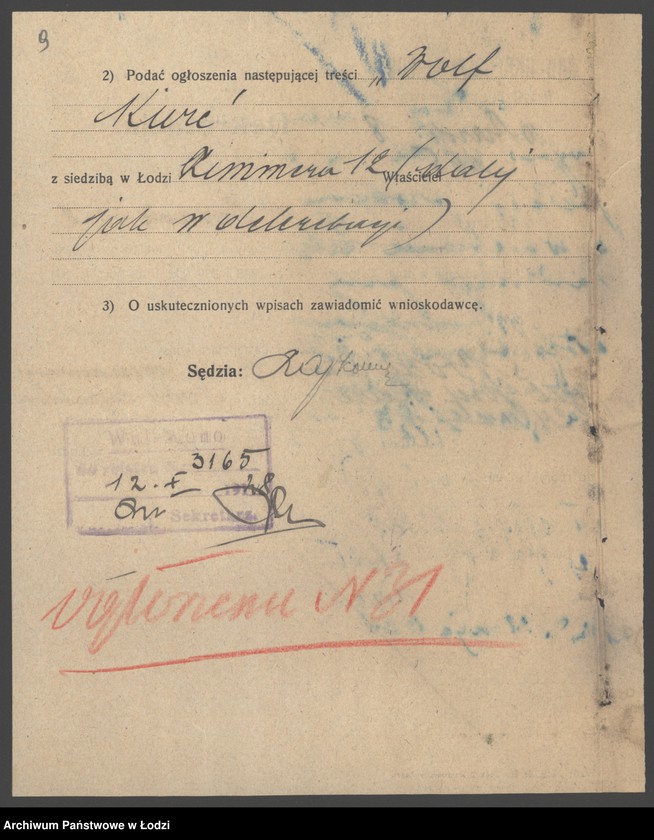 9
2) Podać ogłoszenia następującej treści „Wolf
Kierć
z siedzibą w Łodzi Właściciel 12 (dalej
jak w deklaracji)
3) O uskutecznionych wpisach zawiadomić wnioskodawcę.
Sędzia:
3165
12. X 28
Sekretarz
ogłoszenie N 31
Archiwum Państwowe w Łodzi